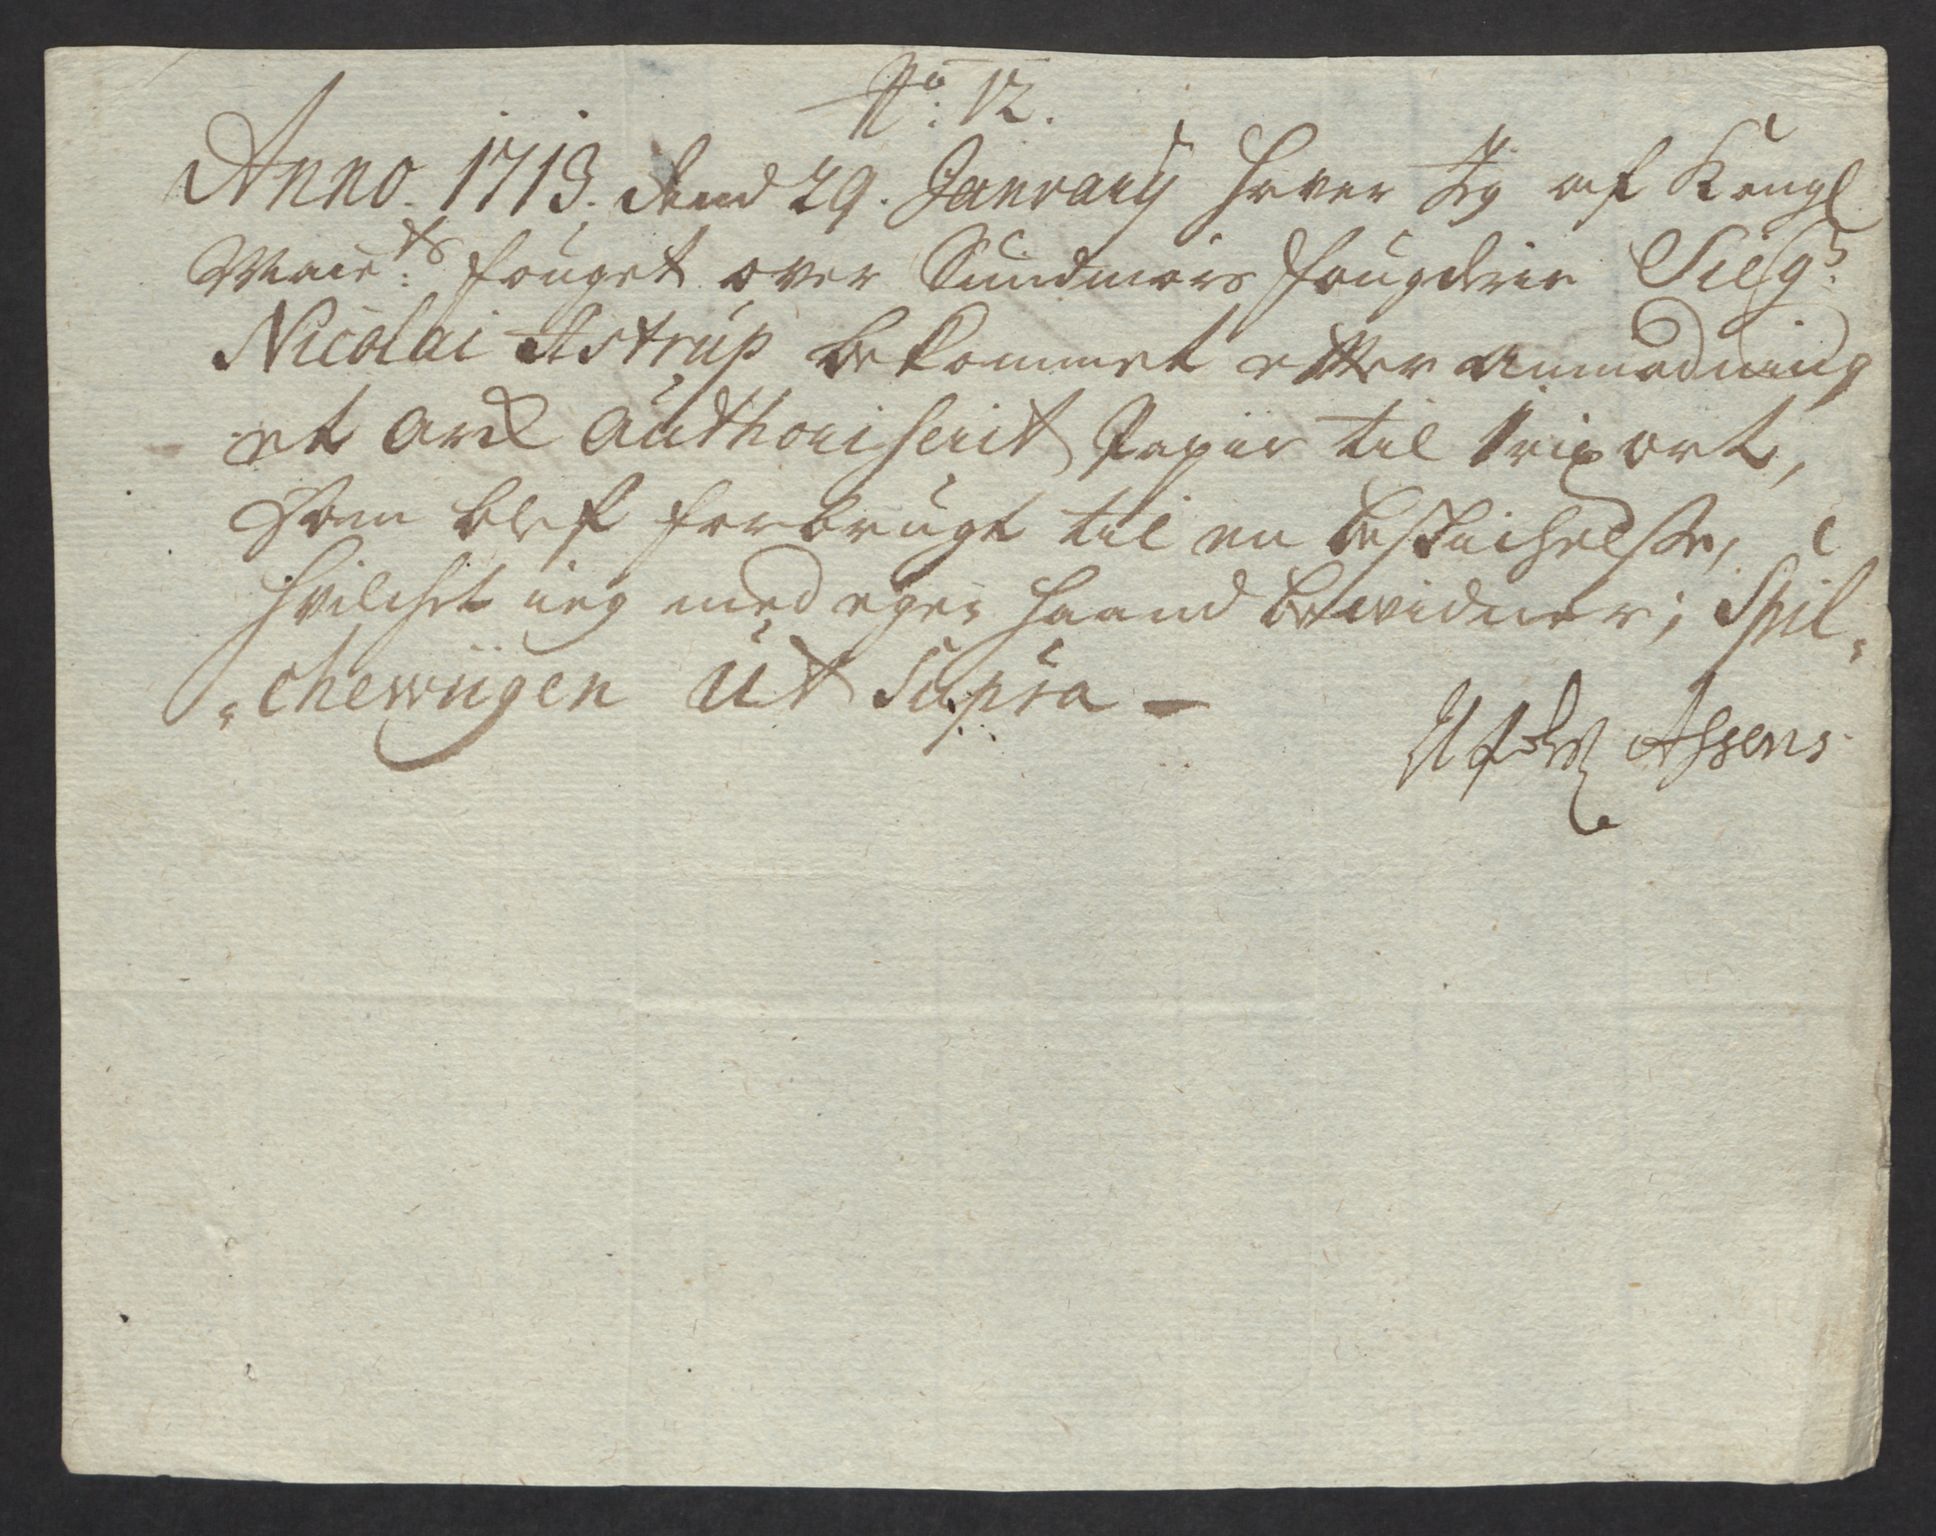 No: 12.
Anno. 1713. dend 29. Janvarij hafver Jeg af Kongl
Maiets: fouget over Sundmørs fougderie Sieg:
Nicolai Astrup bekommet efter anmodning
et arck Authoriserit Papir til 1 rix ort,
som blef forbrugt til en beskichelse,
hvilchet ieg med egen haand bewidner; Spil„
„chewiigen Ut Supra —
Assens